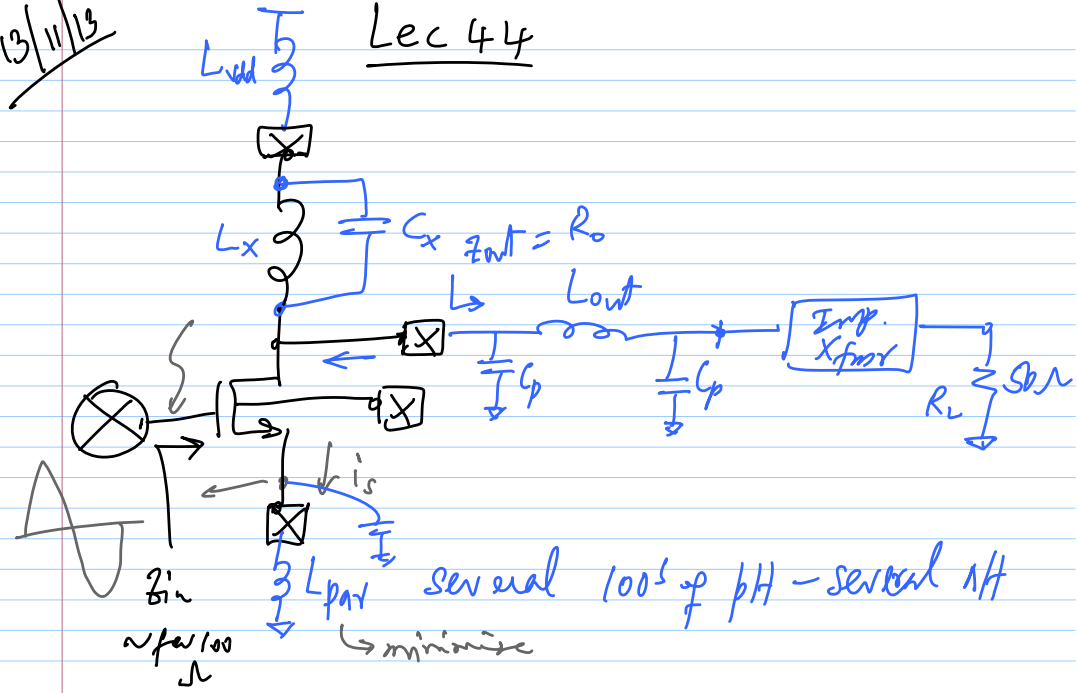 13/11/13
Lec 44
Lvdd
Lx
Cx
Zout = Ro
Lout
Imp.
Xfmr
Cp
Cp
RL
50Ω
is
Zin
~few 100
Ω
Lpar several 100s of pH - several nH
↳ minimise